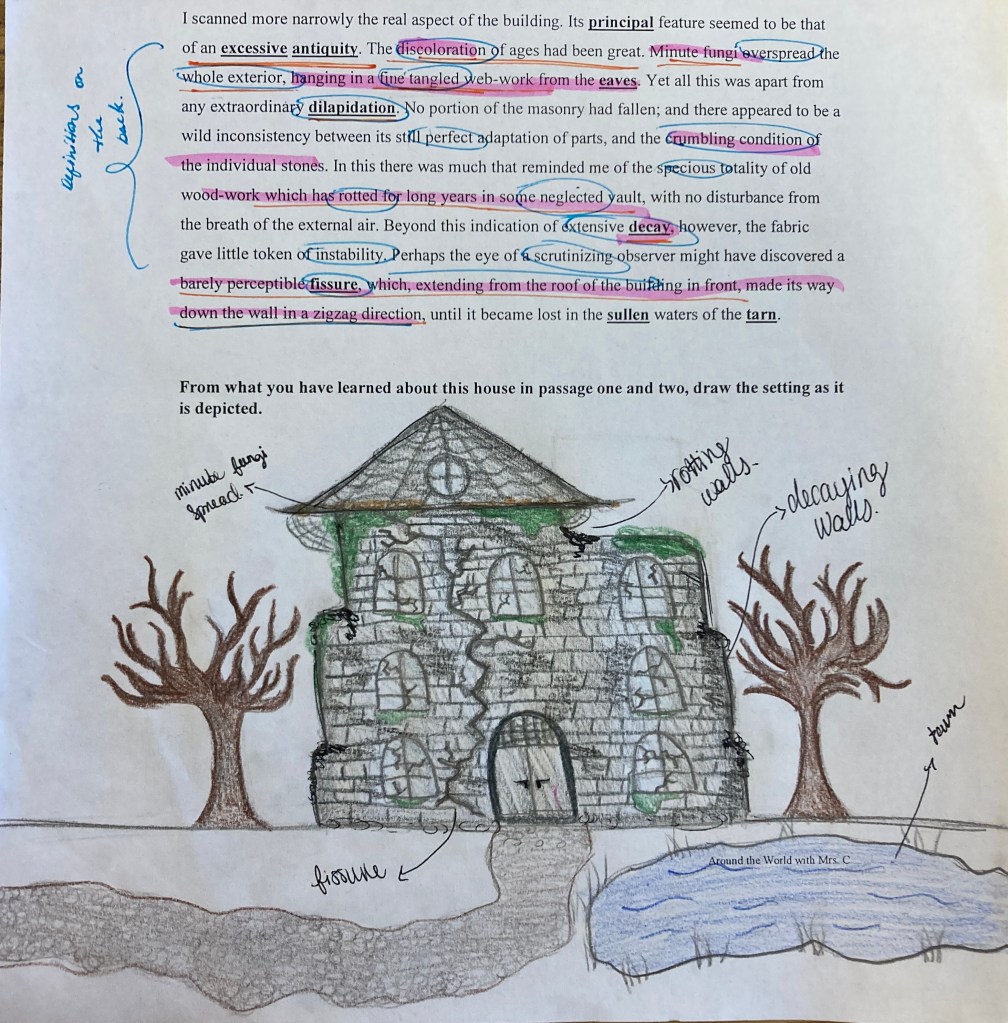 I scanned more narrowly the real aspect of the building. Its principal feature seemed to be that
of an excessive antiquity. The discoloration of ages had been great. Minute fungi overspread the
whole exterior, hanging in a fine tangled web-work from the eaves. Yet all this was apart from
any extraordinary dilapidation. No portion of the masonry had fallen; and there appeared to be a
wild inconsistency between its still perfect adaptation of parts, and the crumbling condition of
the individual stones. In this there was much that reminded me of the specious totality of old
wood-work which has rotted for long years in some neglected vault, with no disturbance from
the breath of the external air. Beyond this indication of extensive decay, however, the fabric
gave little token of instability. Perhaps the eye of a scrutinizing observer might have discovered a
barely perceptible fissure, which, extending from the roof of the building in front, made its way
down the wall in a zigzag direction, until it became lost in the sullen waters of the tarn.
Definitions on
the
back.
From what you have learned about this house in passage one and two, draw the setting as it
is depicted.
minute fungi
spread.
rotting
walls.
decaying
walls.
fissure
Around the World with Mrs. C